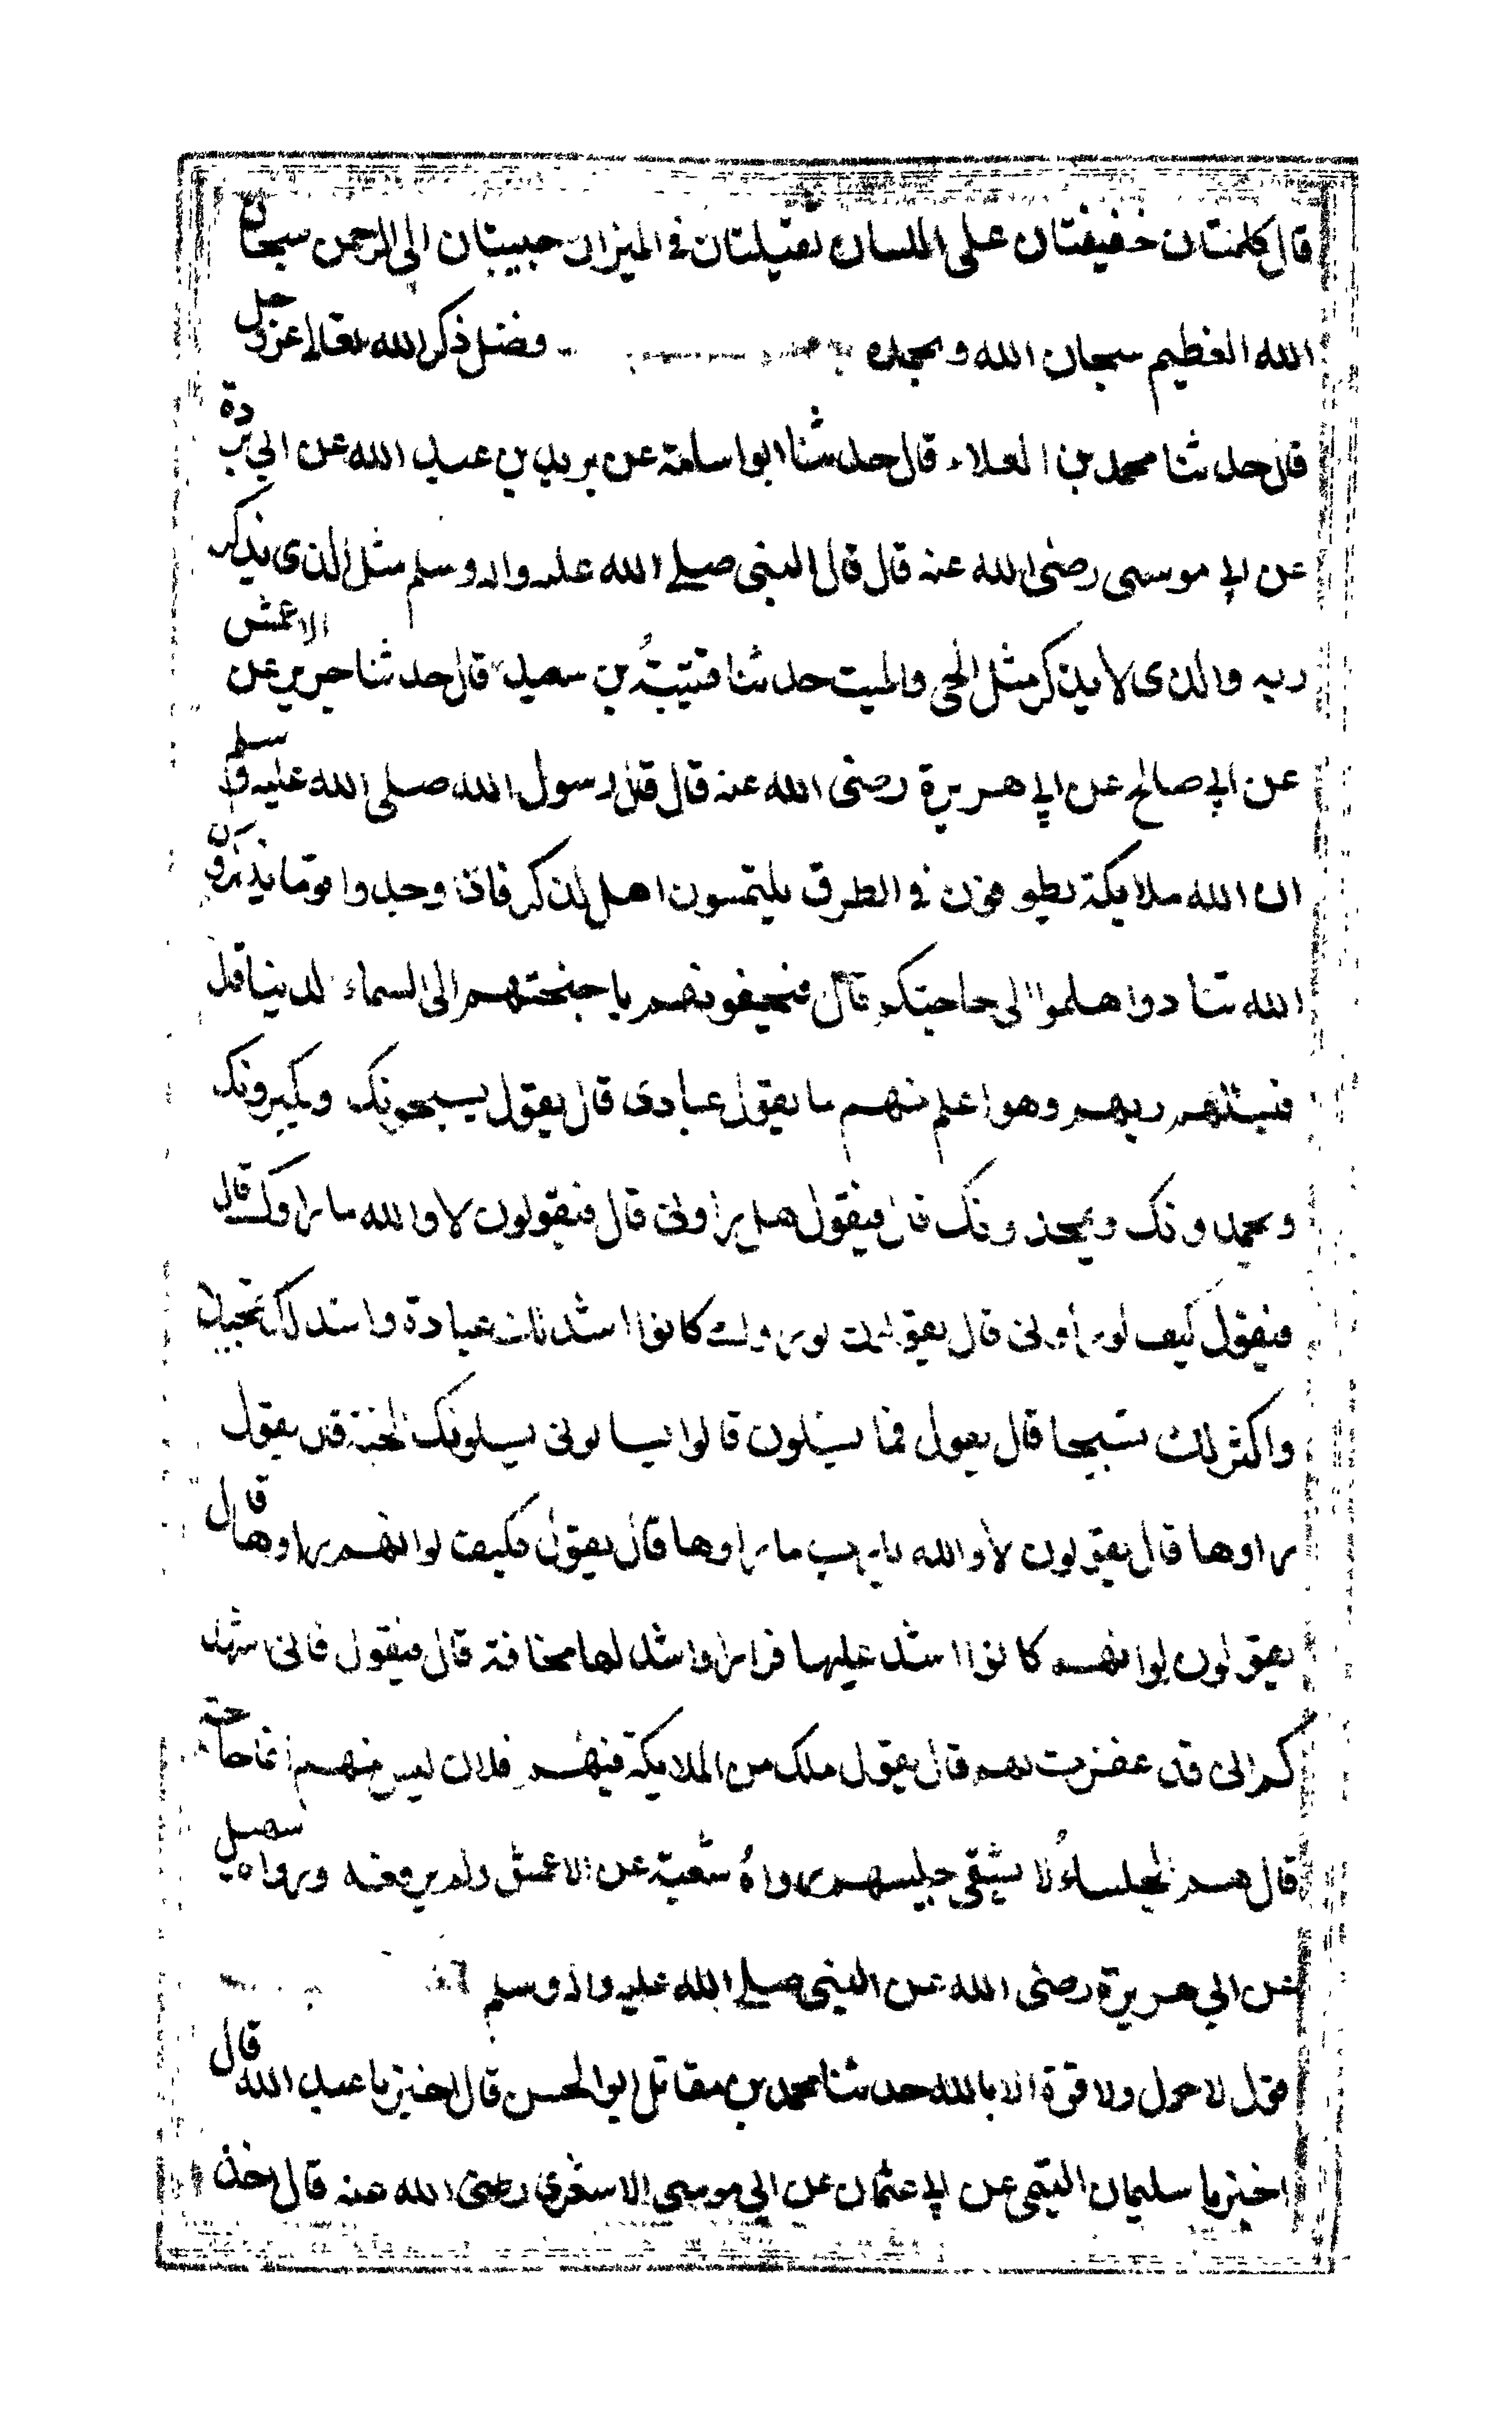 قال كلمتان خفيفتان على اللسان ثقيلتان في الميزان حبيبتان الى الرحمن سبحان
الله العظيم سبحان الله وبحمده فضل ذكر الله تعالى عز وجل
قال حدثنا محمد بن العلاء قال حدثنا ابو اسامة عن بريد بن عبد الله عن ابي بردة
عن ابي موسى رضى الله عنه قال قال النبي صلى الله عليه واله وسلم مثل الذى يذكر
ربه والذى لا يذكر مثل الحى والميت حدثنا قتيبة بن سعيد قال حدثنا جرير عن الاعمش
عن ابي صالح عن ابي هريرة رضى الله عنه قال قال رسول الله صلى الله عليه وسلم
ان الله ملايكة يطوفون في الطرق يلتمسون اهل الذكر فاذا وجدوا قوما يذكرون
الله تنادوا هلموا الى حاجتكم قال فيحفونهم باجنحتهم الى السماء الدنيا قال
فيسئلهم ربهم وهو اعلم منهم ما يقول عبادى قال يقول يسبحونك ويكبرونك
ويحمدونك ويمجدونك قال فيقول هل راونى قال فيقولون لا والله ما راوك قال
فيقول كيف لو راونى قال يقولون لو راوك كانوا اشد لك عبادة واشد لك تمجيدا
واكثر لك تسبيحا قال يقول فما يسئلون قالوا يسالونى يسلونك الجنة قال يقول
راوها قال يقولون لا والله يا رب ما راوها قال يقول فكيف لو انهم راوها قال
يقولون لو انهم كانوا اشد عليها فرارا واشد لها مخافة قال فيقول فانى اشهد
كم انى قد غفرت لهم قال يقول ملك من الملايكة فيهم فلان ليس منهم انما جا حاجة
قال هم الجلساء لا يشقى جليسهم رواه شعبة عن الاعمش ولم يرفعه ورواه سهيل
عن ابي هريرة رضى الله عن النبي صلى الله عليه واله وسلم
قول لا حول ولا قوة الا بالله حدثنا محمد بن مقاتل ابو الحسن قال اخبرنا عبد الله قال
اخبرنا سليمان التيمى عن ابي عثمان عن ابي موسى الاشعري رضى الله عنه قال اخذ